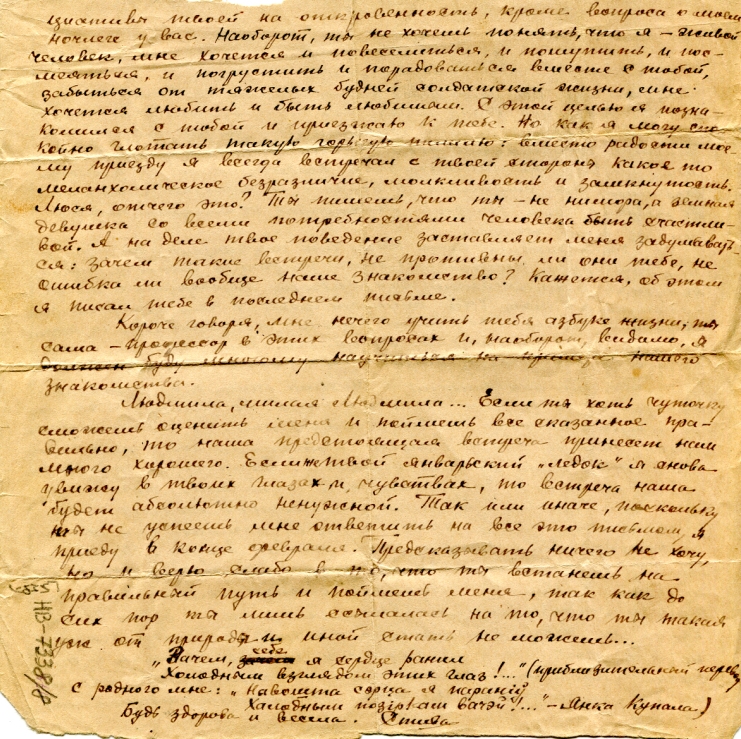 циативы твоей на откровенность, кроме вопроса о моем
ночлеге у вас. Наоборот, ты не хочешь понять, что я – живой
человек, мне хочется и повеселиться, и пошутить, и пос-
меяться, и погрустить и порадоваться вместе с тобой,
забыться от тяжелых будней солдатской жизни, мне
хочется любить и быть любимым. С этой целью я позна-
комился с тобой и приезжаю к тебе. Но как я могу спо-
койно глотать такую горькую пилюлю: вместо радости мое-
му приезду я всегда встречал с твоей стороны какое то
меланхолическое безразличие, молкливость и замкнутость.
Люся, отчего это? Ты пишешь, что ты – не нимфа, а земная
девушка со всеми потребностями человека быть счастли-
вой. А на деле твое поведение заставляет меня задумывать-
ся: зачем такие встречи, не противны ли они тебе, не
ошибка ли вообще наше знакомство? Кажется, об этом
я писал тебе в последнем письме.
Короче говоря, мне нечего учить тебя азбуке жизни, ты
сама – профессор в этих вопросах и, наоборот, видимо, я
должен буду многому научиться на нашего
знакомства.
Людмила, милая Людмила... Если ты хоть чуточку
сможешь оценить меня и поймешь все сказанное пра-
вильно, то наша предстоящая встреча принесет нам
много хорошего. Если же твой январский „ледок" я снова
увижу в твоих глазах и чувствах, то встреча наша
будет абсолютно ненужной. Так или иначе, поскольку
ты не успеешь мне ответить на все это письмом, я
приеду в конце февраля. Предсказывать ничего не хочу,
но и верю слабо в то, что ты встанешь на
правильный путь и поймешь меня, так как до
сих пор ты лишь ссылалась на то, что ты такая
уж от природы и иной стать не можешь...
„Зачем, себе я сердце ранил
Холодным взглядом этих глаз!..." (приблизительный перевод
с родного мне: „Навошта сэрца я параніў
Халодным позіркам вачэй!..." – Янка Купала)
Будь здорова и весела. Стива
НВ-7338/8